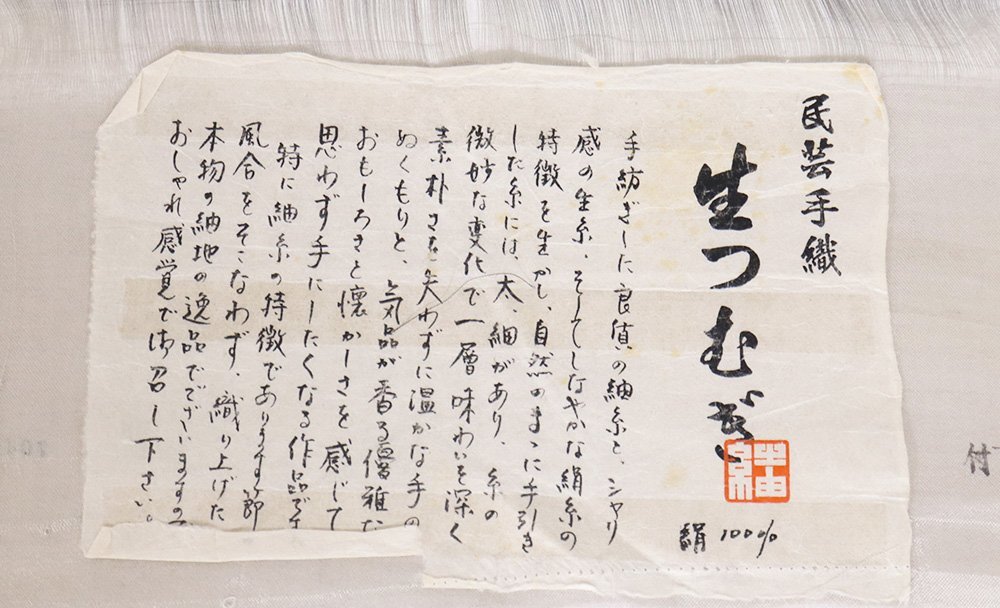 民芸手織
生つむぎ
絹100%
手紡ぎした良質の紬糸と、シャリ
感の生糸、そしてしなやかな絹糸の
特徴を生かし、自然のまゝに手引き
した糸には、太、細があり、糸の
微妙な変化で一層味わいを深く
素朴さを失わずに温かな手の
ぬくもりと、気品が香る優雅な
おもしろさと懐かしさを感じて
思わず手にしたくなる作品です
特に紬糸の特徴であります節
風合をそこなわず、織り上げた
本物の紬地の逸品でございますので
おしゃれ感覚で御召し下さい。
付